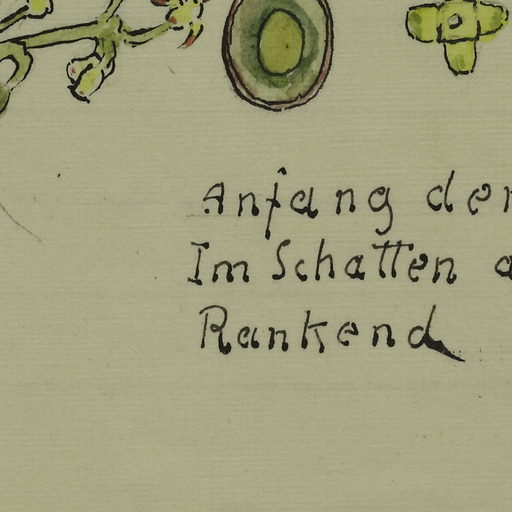 Anfang der
Im Schatten a
Rankend